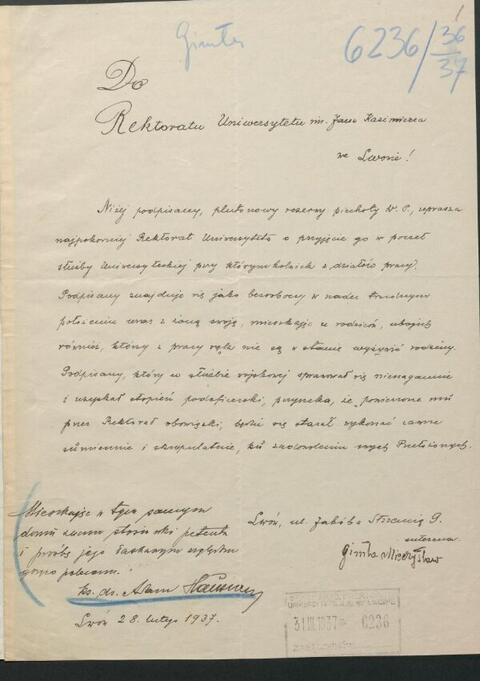 1
6236/36/37
Do
Rektoratu Uniwersytetu im. Jana Kazimierza
we Lwowie!
Niżej podpisany, plutonowy rezerwy piechoty W. P., uprasza
najpokorniej Rektorat Uniwersytetu o przyjęcie go w poczet
służby Uniwersyteckiej przy którymkolwiek z działów pracy.
Podpisany znajduje się jako bezrobotny w nader trudnym
położeniu wraz z żoną swoją, mieszkając u rodziców, ubogich
również, którzy z pracy rąk nie są w stanie wyżywić rodziny.
Podpisany, który w służbie wojskowej sprawował się nienagannie
i uzyskał stopień podoficerski, przyrzeka, że powierzone mu
przez Rektorat obowiązki, będzie się starał wykonać zawsze
sumiennie i skrupulatnie, ku zadowoleniu swych Przełożonych.
Lwów, ul. Jakóba Strzemię 9.
Mieszkając w tym samym
domu znam stosunki petenta
i prośbę jego łaskawym względom
gorąco polecam.
Ks. dr. Adam
Lwów 28. lutego 1937.
Mieczysław
31 III 1937
6236